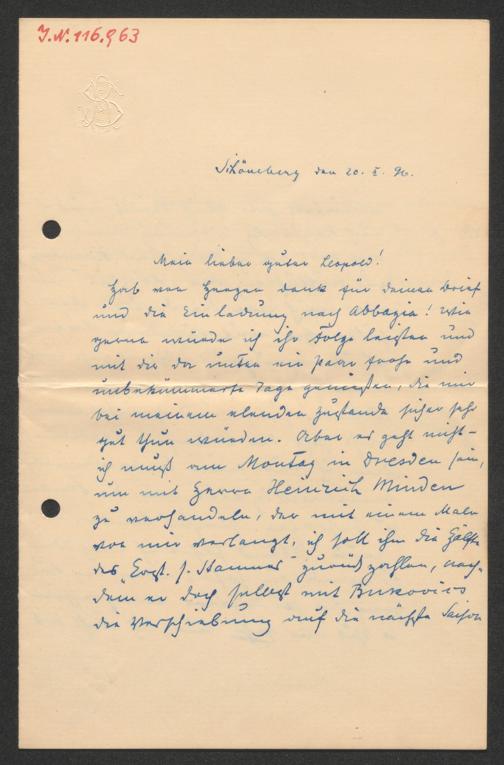 J.N. 116.963
Schöneberg den 20. I. 96.
Mein lieber guter Leopold!
Hab von Herzen Dank für deinen Brief
und die Einladung nach Abbazia! Wie
gerne würde ich ihr Folge leisten und
mit dir da unten ein paar frohe und
unbekümmerte Tage genießen, die mir
bei meinem elenden Zustande sicher sehr
gut thun würden. Aber es geht nicht –
ich muß am Montag in Dresden sein,
um mit Herrn Heinrich Minden
zu verhandeln, der mit einem Male
von mir verlangt, ich soll ihm die Hälfte
des „ j. Hammer“ zurückzahlen, nach-
dem er doch selbst mit Bukovics
die Verschiebung auf die nächste Saison